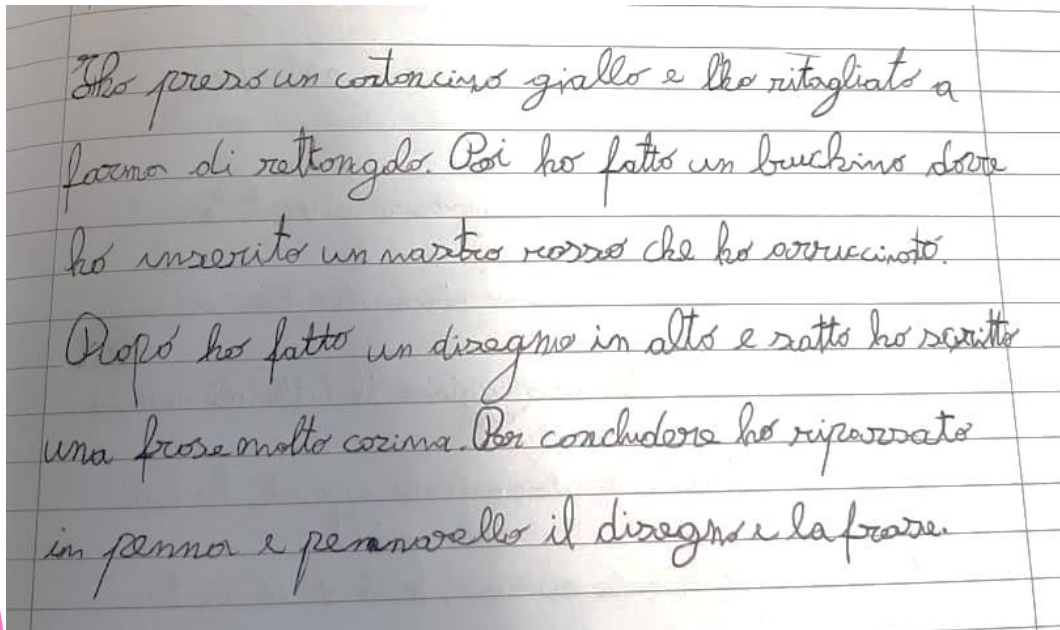 Iho preso un cartoncino giallo e lho ritagliato a
forma di rettongolo. Poi ho fatto un buchino dove
ho inserito un nastro rosso che ho arruccinato.
Dopo ho fatto un disegno in alto e sotto ho scritto
una frase molto carina. Per concludere ho ripassato
in penna e pennarello il disegno e la frase.